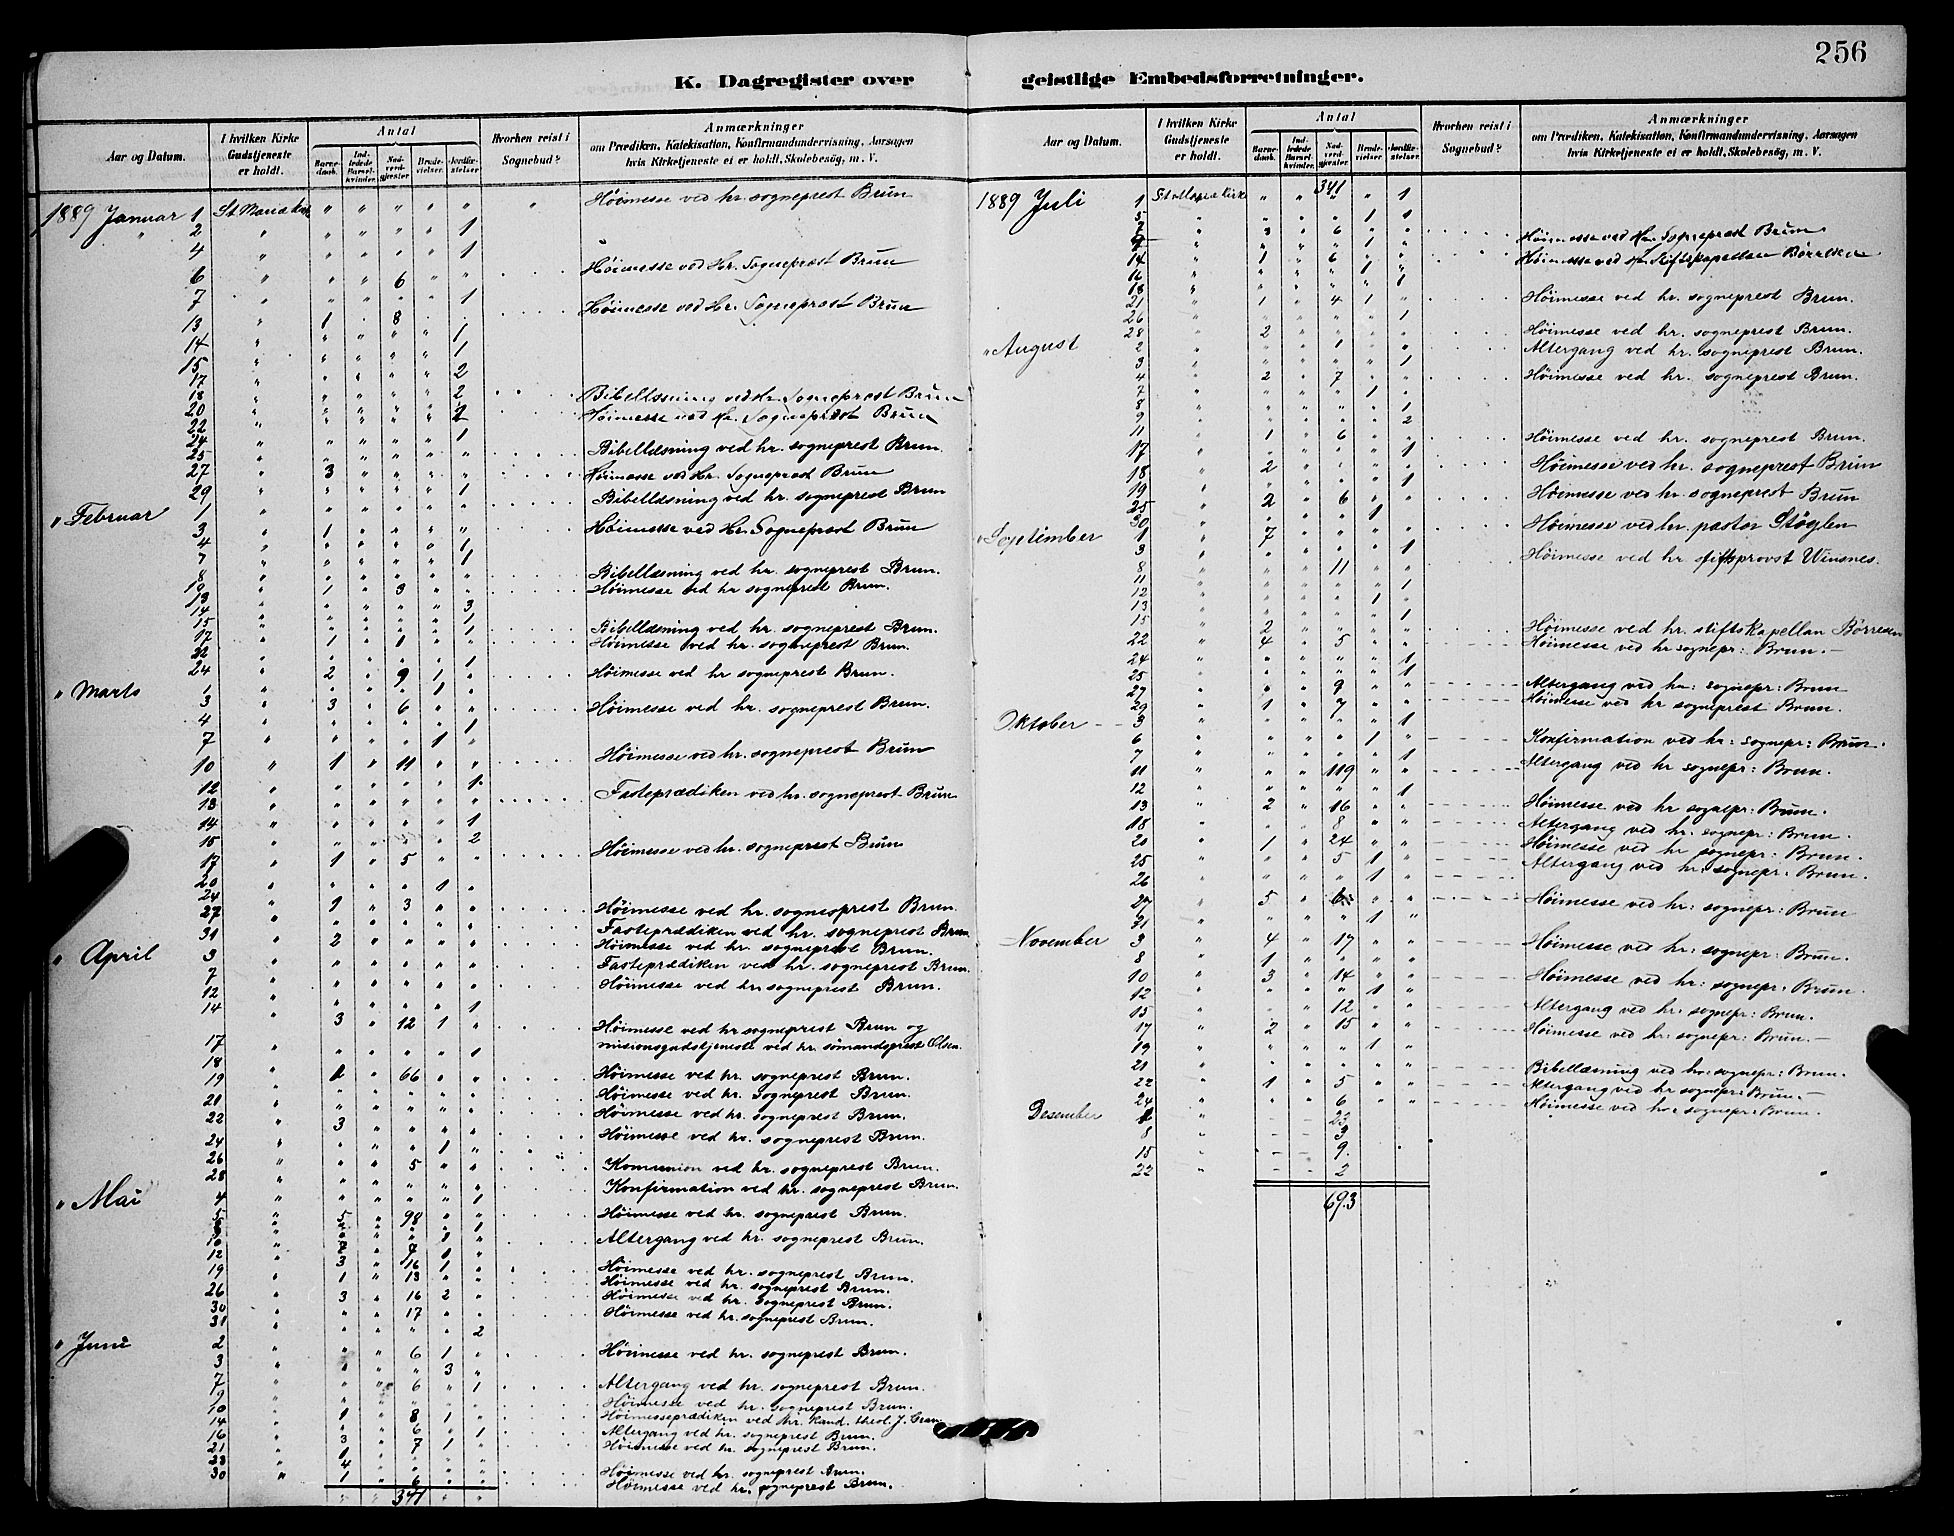 256
K. Dagregister over geistlige Embedsforretninger.
Aar og Datum. I hvilken Kirke Gudstjeneste er holdt. Antal Barnedaab. Indledede Barselkvinder. Nadverdgjæster Brudevielser. Jordfæstelser Hvorhen reist i Sognebud? Anmærkninger om Prædiken, Katekisation, Konfirmandundervisning, Aarsagen hvis Kirketjeneste ei er holdt, Skolebesøg, m. V.
1889 Januar 1 St Maria kirke " " " " " " Høimesse ved hr. sogneprest Brun
" 2 " " " " " 1
4 " " " " " 1
6 " " " 6 " " Høimesse ved Hr. Sogneprest Brun
7 " " " " " 1
13 " 1 . 8 . . Høimesse ved Hr. Sogneprest Brun
14 " " " " " 1
15 " " " " " 1
17 " " " " " 2
18 " " " " " 2 Bibellæsning ved Hr. Sogneprest Brun
20 Høimesse ved Hr. Sogneprest Brun
22
24 Bibellæsning ved hr. sogneprest Brun
25
27 " 3 " " " " Høimesse ved Hr. Sogneprest Brun
29 " " " " " 1 Bibellæsning ved hr. sogneprest Brun
" Februar 1
3 " 1 " " " " Høimesse ved Hr. Sogneprest Brun
4 " " " " " 1
7 " " " " " 1
8 Bibellæsning ved hr. sogneprest Brun.
10 " 1 " 3 " " Høimesse ved hr sogneprest Brun.
13 " " " " " 3
14 " " " " " 1
15 " " " " " 1 Bibellæsning ved hr. sogneprest Brun.
17 " 1 " 1 " " Høimesse ved hr. sogneprest Brun.
22 " " " " " 1
24 " 2 " 9 1 " Høimesse ved hr sogneprest Brun.
" Marts 1 " " " " 1 "
3 " 3 " 6 " " Høimesse ved hr. sogneprest Brun.
4 " " " " " 1
7 " " " " 1 "
10 " 1 " 11 " " Høimesse ved hr. sogneprest Brun
12 " " " " " 1
13 " " " " " " Fasteprædiken ved hr. sogneprest Brun
14 " " " " " 1
15 " " " " " 2
17 " 1 " 5 " " Høimesse ved hr. sogneprest Brun
20 " " " " 1 "
24 " 1 " 3 " " Høimesse ved hr. sogneprest Brun.
27 " " " " " " Fasteprædiken ved hr. sogneprest Brun
31 " 2 " " " " Høimesse ved hr. sogneprest Brun.
" April 3 " " " " " " Fasteprædiken ved hr. sogneprest Brun.
7 " " " " " " Høimesse ved hr. sogneprest Brun.
12 " " " " " 1
14 " 3 " 12 1 " Høimesse ved hr sogneprest Brun og
misionsgudstjeneste ved hr. sømandsprest Olsen.
17 " " " " " 1
18 66 Høimesse ved hr. sogneprest Brun.
19 Høimesse ved hr. sogneprest Brun.
21 Høimesse ved hr. sogneprest Brun.
22 " 3 " " " " Høimesse ved hr. sogneprest Brun.
24 " " " " 1 "
26 " " " 5 " " Komunion ved hr. sogneprest Brun.
28 " " " " " " Konfirmation ved hr. sogneprest Brun.
" Mai 4 " " " " " 1
5 " 5 " 98 " " Høimesse ved hr. sogneprest Brun.
10 Altergang ved hr. sogneprest Brun.
12 " 3 " 16 1 " Høimesse ved hr. sogneprest Brun.
19 " 1 " 13 " " Høimesse ved hr. sogneprest Brun.
26 " 3 " 16 2 " Høimesse ved hr. sogneprest Brun.
30 " " " 17 " " Høimesse ved hr. sogneprest Brun.
31 " " " " " 2
" Juni 2 " " " 6 1 " Høimesse ved hr. sogneprest Brun.
3 " " " " 3 "
7 " " " 6 " 1 Altergang ved hr. sogneprest Brun.
9 Høimesse ved hr. sogneprest Brun.
10 1 " 8 1 Høimesseprædiken ved hr. Kand. theol. J. Gran
14 6 1 Altergang ved hr. sogneprest Brun.
16 3 " 7 1 Høimesse ved hr. sogneprest Brun.
21 1
23 4 Høimesse ved hr. sogneprest Brun.
30 1 6 Høimesse ved hr. sogneprest Brun.
341
Aar og Datum. I hvilken Kirke Gudstjeneste er holdt. Antal Barnedaab. Indledede Barselkvinder. Nadverdgjæster Brudevielser. Jordfæstelser Hvorhen reist i Sognebud? Anmærkninger om Prædiken, Katekisation, Konfirmandundervisning, Aarsagen hvis Kirketjeneste ei er holdt, Skolebesøg, m. V.
341
1889 Juli 1 St Mariæ Kirke " " " " 1
5 " " " " 1 1
7 " 3 " 6 " " Høimesse ved Hr. Sogneprest Brun
9 " " " " 1 "
14 " 1 " 6 " " Høimesse ved Hr. Stiftskapellan Børresen
16 " " " " 1 "
18 " " " " " 1
21 " 1 " 4 1 " Høimesse ved hr. sogneprest Brun.
26 " " " " " 1
28 " 2 " " " " Høimesse ved hr. sogneprest Brun.
" August 2 " " " 1 " " Altergang ved hr. sogneprest Brun.
3 " " " " " 1
4 " 2 " 7 " " Høimesse ved hr. sogneprest Brun.
7 " " " " 1 "
8 " " " " " 1
9 " " " " " 2
11 " 1 " 6 " " Høimesse ved hr. sogneprest Brun.
17 " " " " " 1
18 " 2 " " " " Høimesse ved hr. sogneprest Brun
19 " " " " " 1
25 " 2 " 6 " " Høimesse ved hr. sogneprest Brun
30 " " " " 1 "
" September 1 " 7 " " " " Høimesse ved hr. pastor Støylen
3 " " " " " 1
8 " " " 11 " " Høimesse ved hr stiftsprovst Winsnes.
11 " " " " " 1
12 " " " " 1 "
13 " " " " " 1
15 " 2 " " " " Høimesse ved hr. stiftskapellan Børresen
22 " 4 " 5 " " Høimesse ved hr sognepr: Brun.
24 " " " " " 1
25 " " " " " 1
27 " " " 9 " " Altergang ved hr: sognepr: Brun
29 " 1 " 7 " " Høimesse ved hr sogneprest Brun.
Oktober 3 " " " " " 1
6 " " " " 1 " Konfirmation ved hr: sognepr: Brun.
7 " " " " " 1
11 " " " 119 " " Altergang ved hr sognepr: Brun.
12 " " " " " 1
13 " 2 " 16 " " Høimesse ved hr sognepr: Brun.
18 " " " 8 " " Altergang ved hr. sognepr: Brun.
20 " 1 " 24 " " Høimesse ved hr sognepr: Brun.
25 " " " 5 1 " Altergang ved hr. sognepr: Brun.
26 " " " " 1 "
27 " 5 " " " Høimesse ved hr: sognepr: Brun
31 " " " " 1 "
November 3 " 4 " 17 " " Høimesse ved hr: sognepr: Brun.
8 " 1 " " " "
10 " 3 " 14 " " Høimesse ved hr: sognepr: Brun.
12 " " " " 1 "
15 " " " 12 " " Altergang ved hr: sognepr: Brun.
17 " 2 " 15 " " Høimesse ved hr: sognepr: Brun.
19 " " " " 1 "
21 " " " " " " Bibellæsning ved hr: sognepr: Brun.
22 " 1 " 5 " " Altergang ved hr sognepr: Brun.
24 " " " 6 " " Høimesse ved hr: sognepr: Brun.
Desember 1 " - - 23
8 " - - 3
15 " - - 9.
22 " - - 2
693